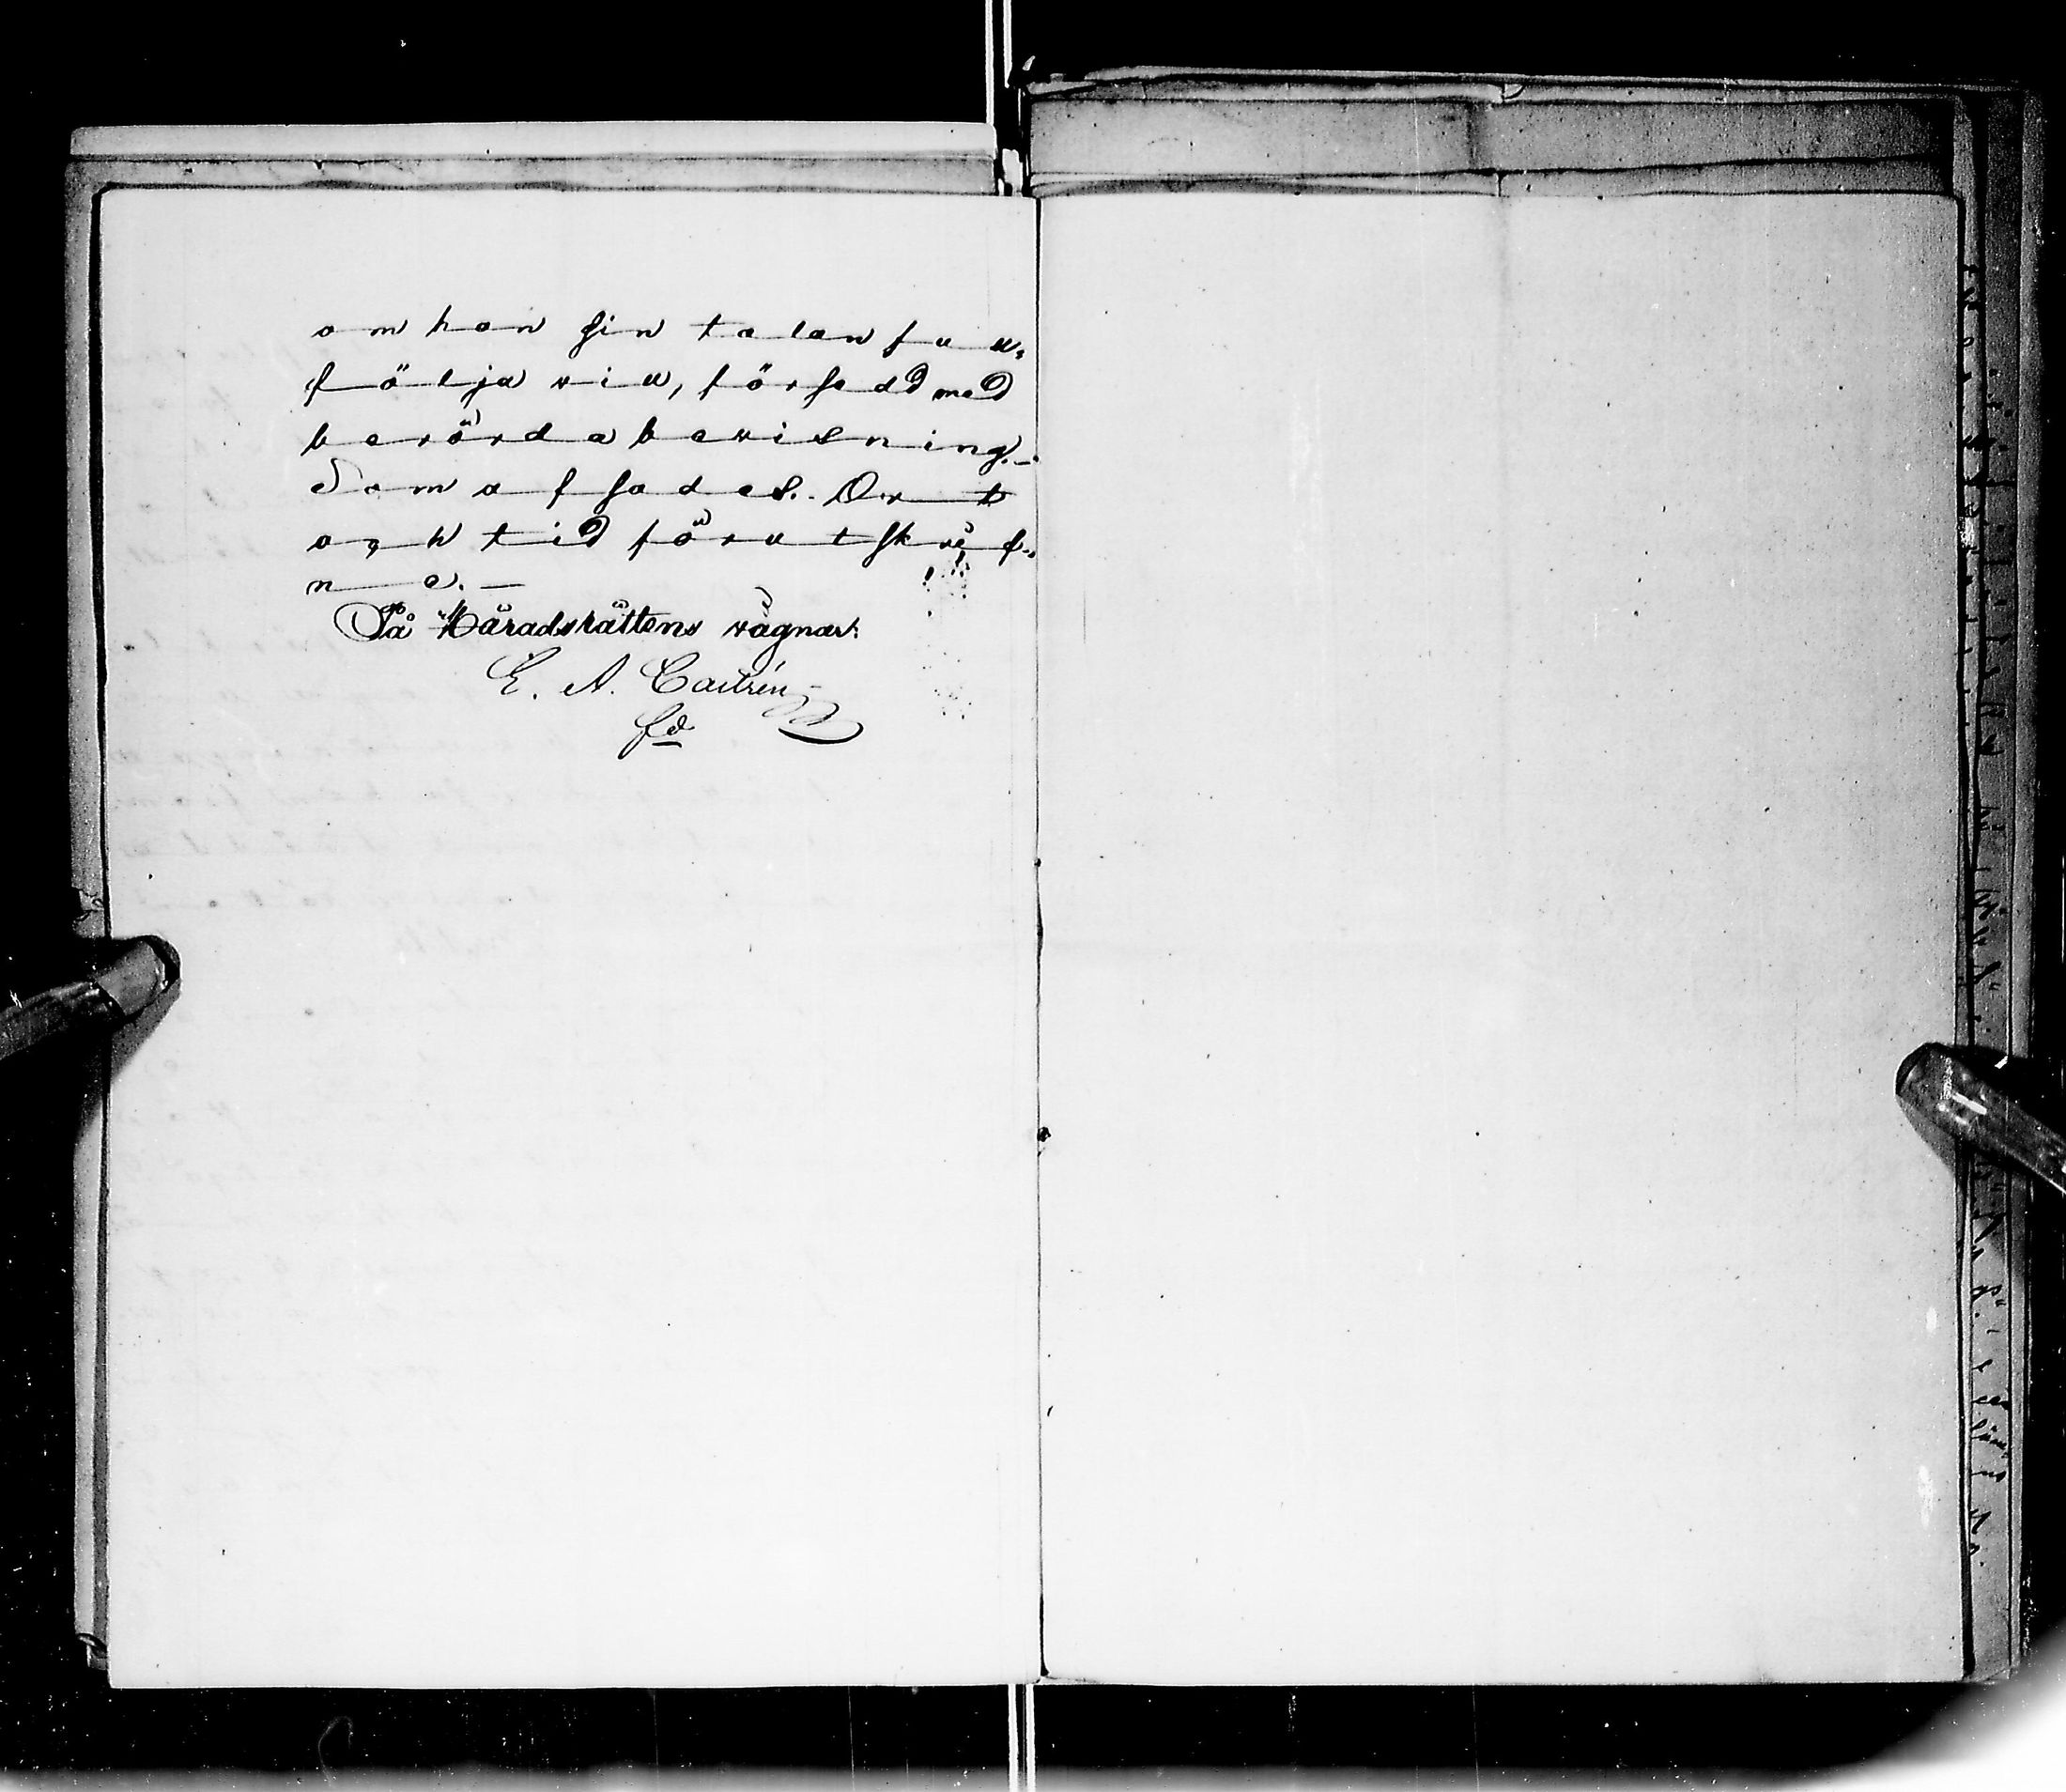 om han sin talan full-
följa vill, försedd med
berörda bevisning.-
Som afsades. Ort
och tid förutskrif-
ne.-
På Häradsrättens vägnar:
E. A. Castrén